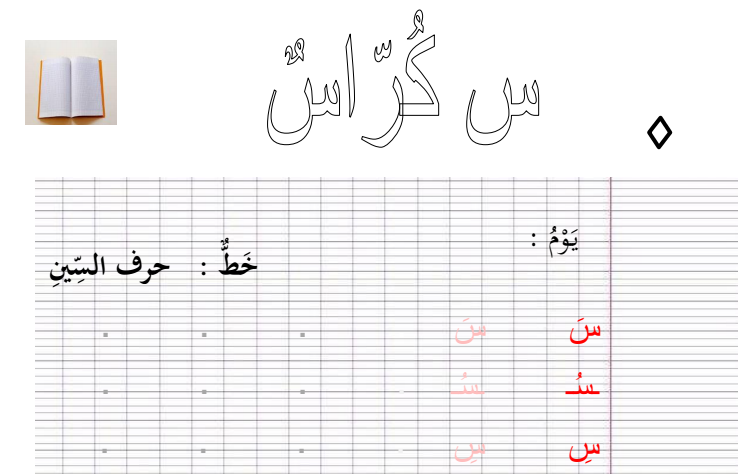 س كُرّاسٌ
يَوْمُ :
خَطٌّ : حرف السِّينِ
سَ سَ
ـسُـ ـسُـ
سِ سِ